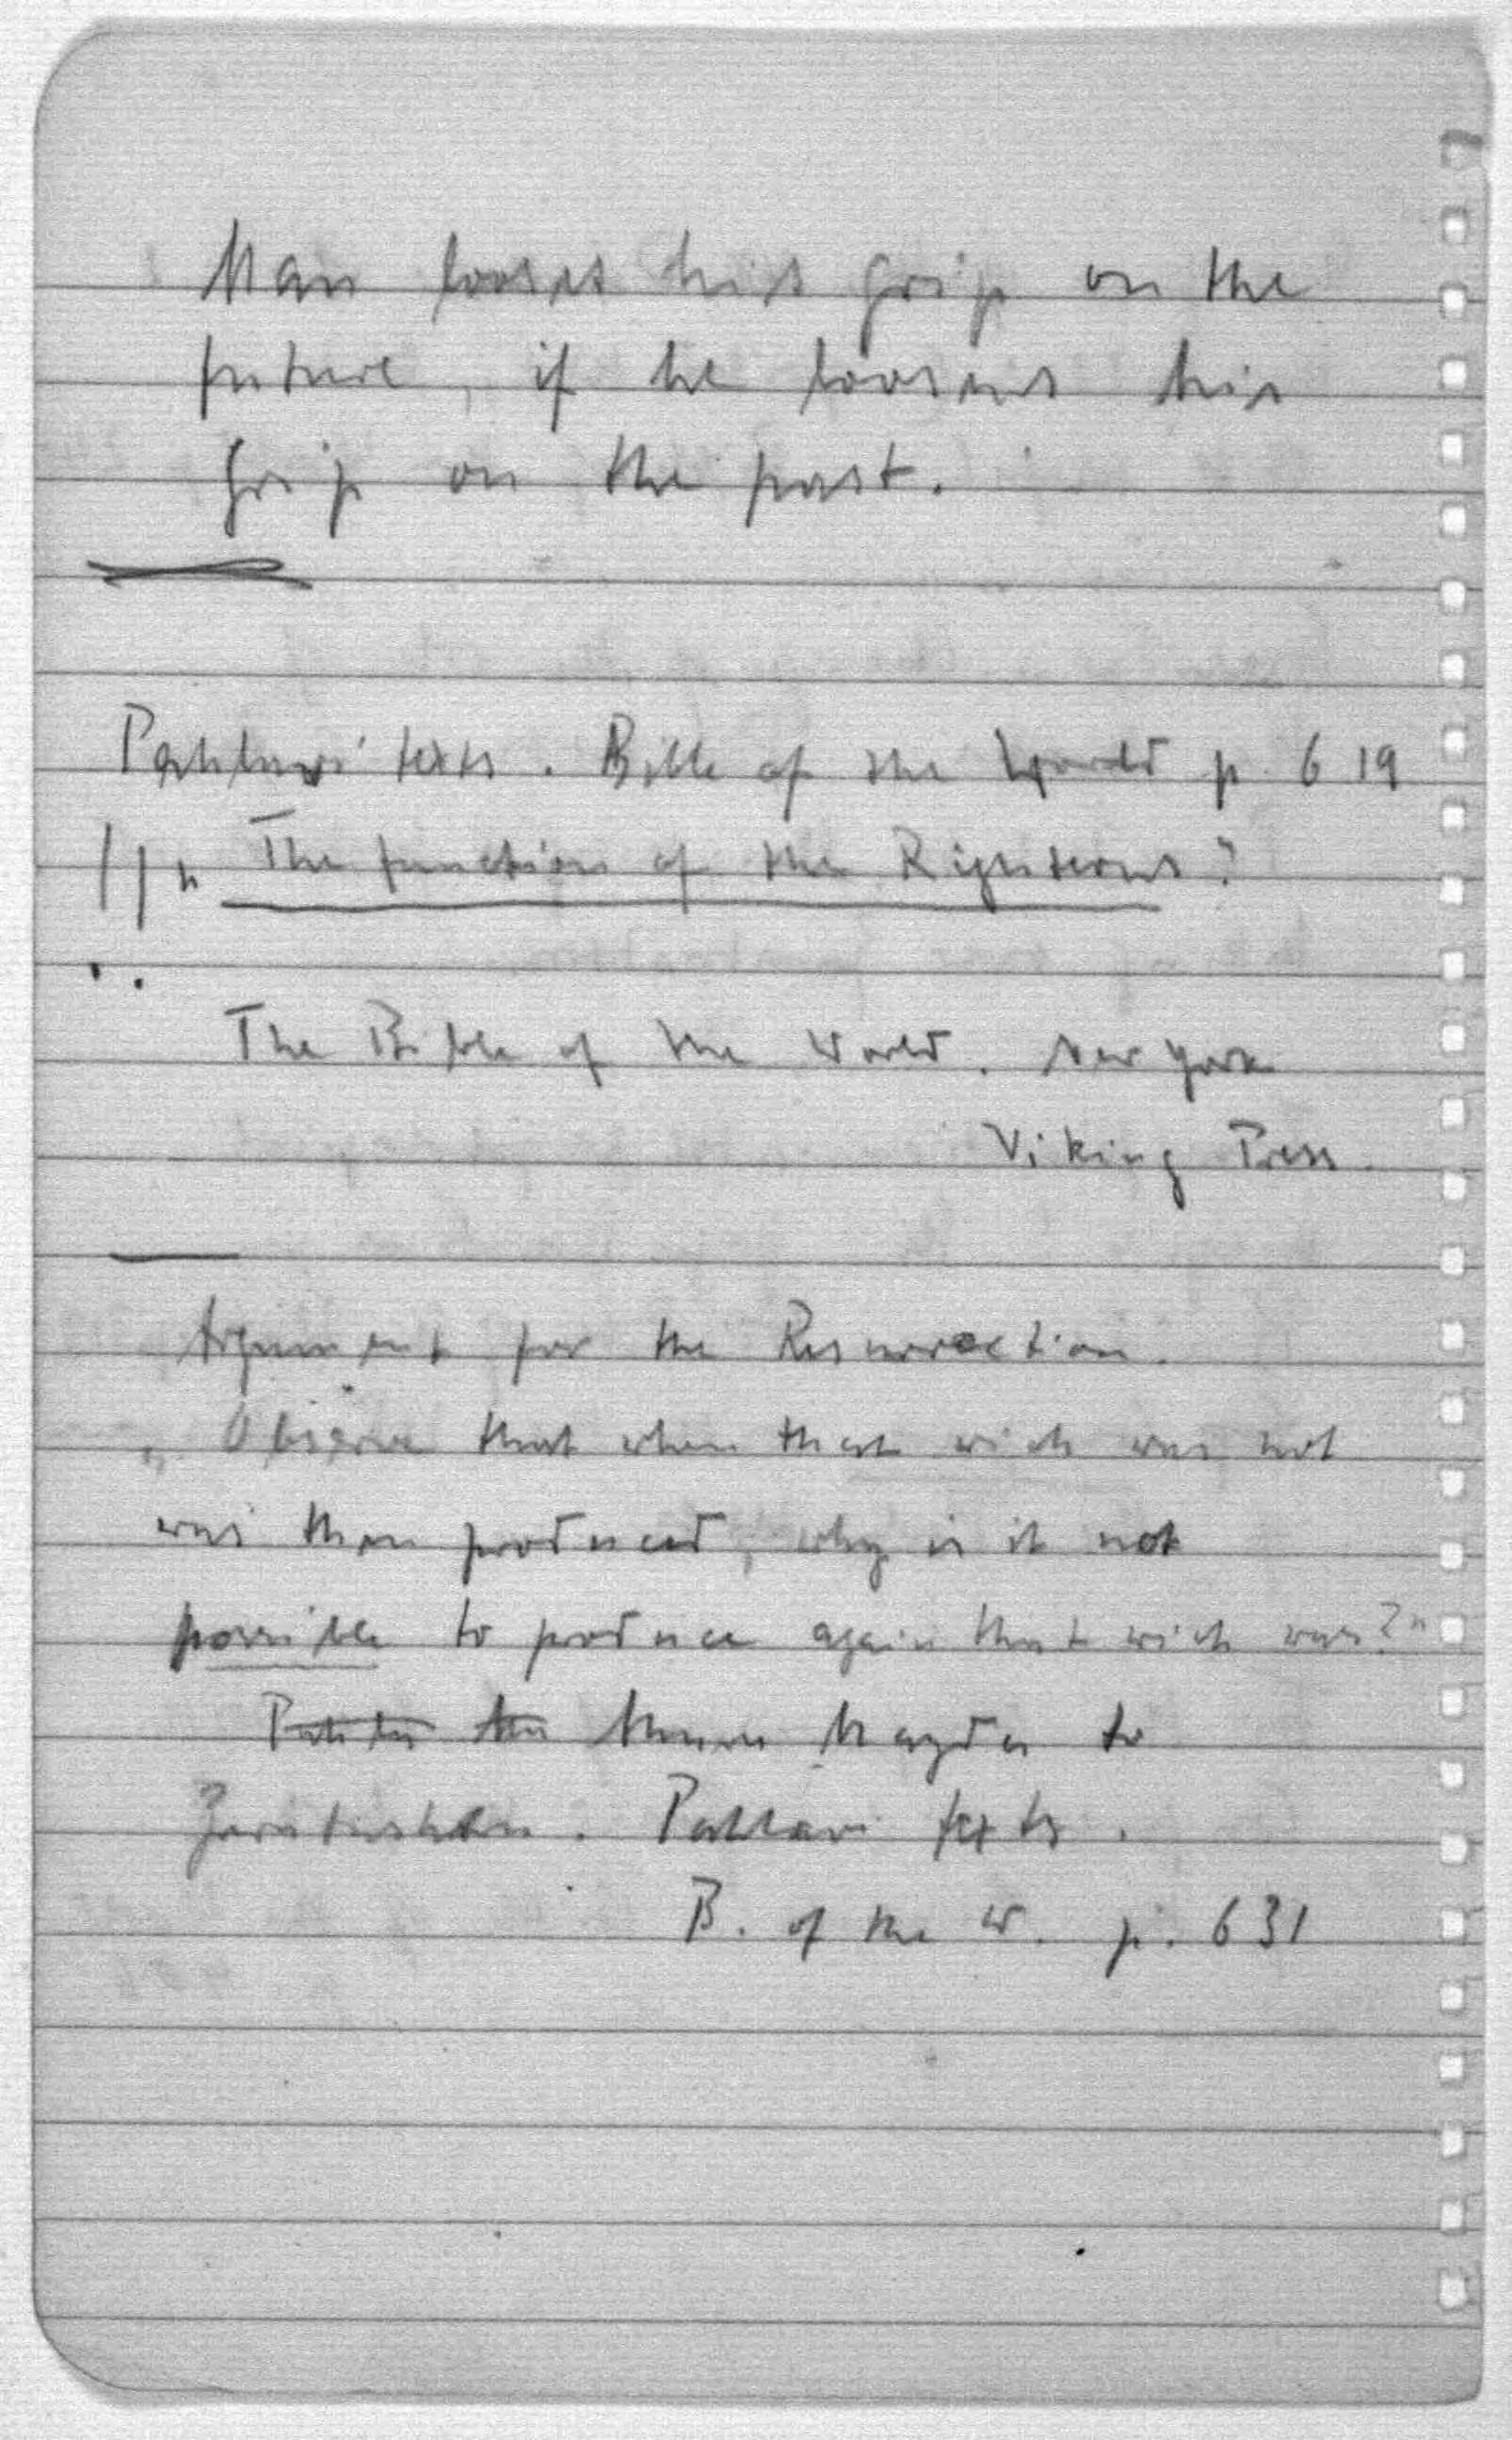 Man looses his grip on the
future, if he loosens his
grip on the past.
Pahlavi texts. Bible of the World p. 619
"The function of the Righteous?
The Bible of the World. New York
Viking Press.
Argument for the Resurrection.
„Observe that when that wich was not
was then produced, why is it not
possible to produce again that wich was?"
Mazda to
Zaratushtra. Pahlavi texts.
B. of the W. p. 631